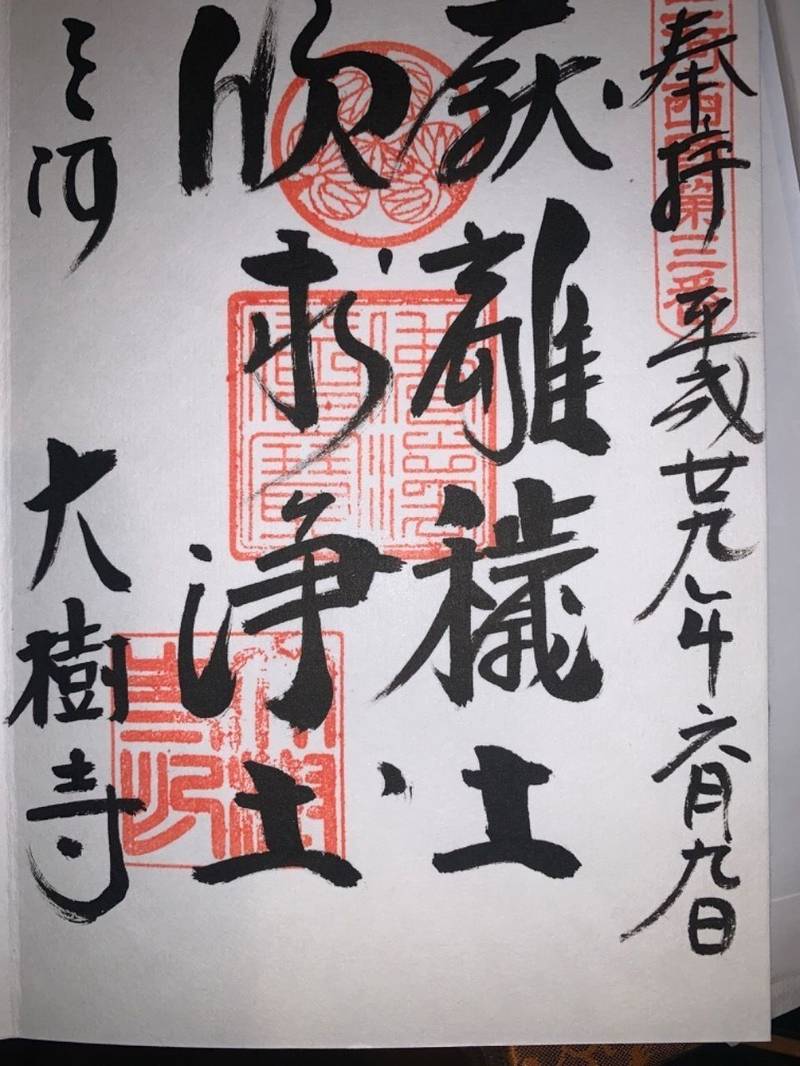 奉拝 平成廿九年六月九日
厭離穢土
欣求浄土
三河 大樹寺
第三番